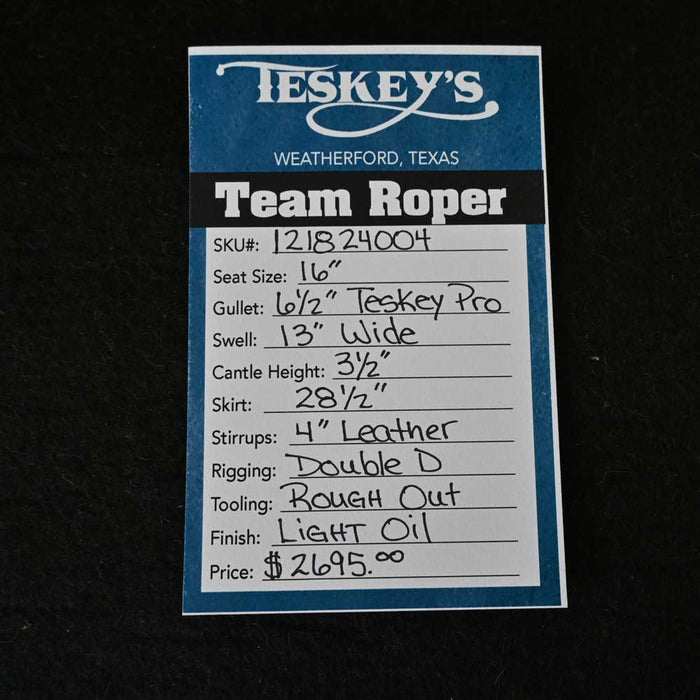 TESKEY'S
WEATHERFORD, TEXAS
Team Roper
SKU#: 121824004
Seat Size: 16"
Gullet: 6 1/2" Teskey Pro
Swell: 13" Wide
Cantle Height: 3 1/2"
Skirt: 28 1/2"
Stirrups: 4" Leather
Rigging: Double D
Tooling: ROUGH Out
Finish: LIGHT Oil
Price: $2695.00